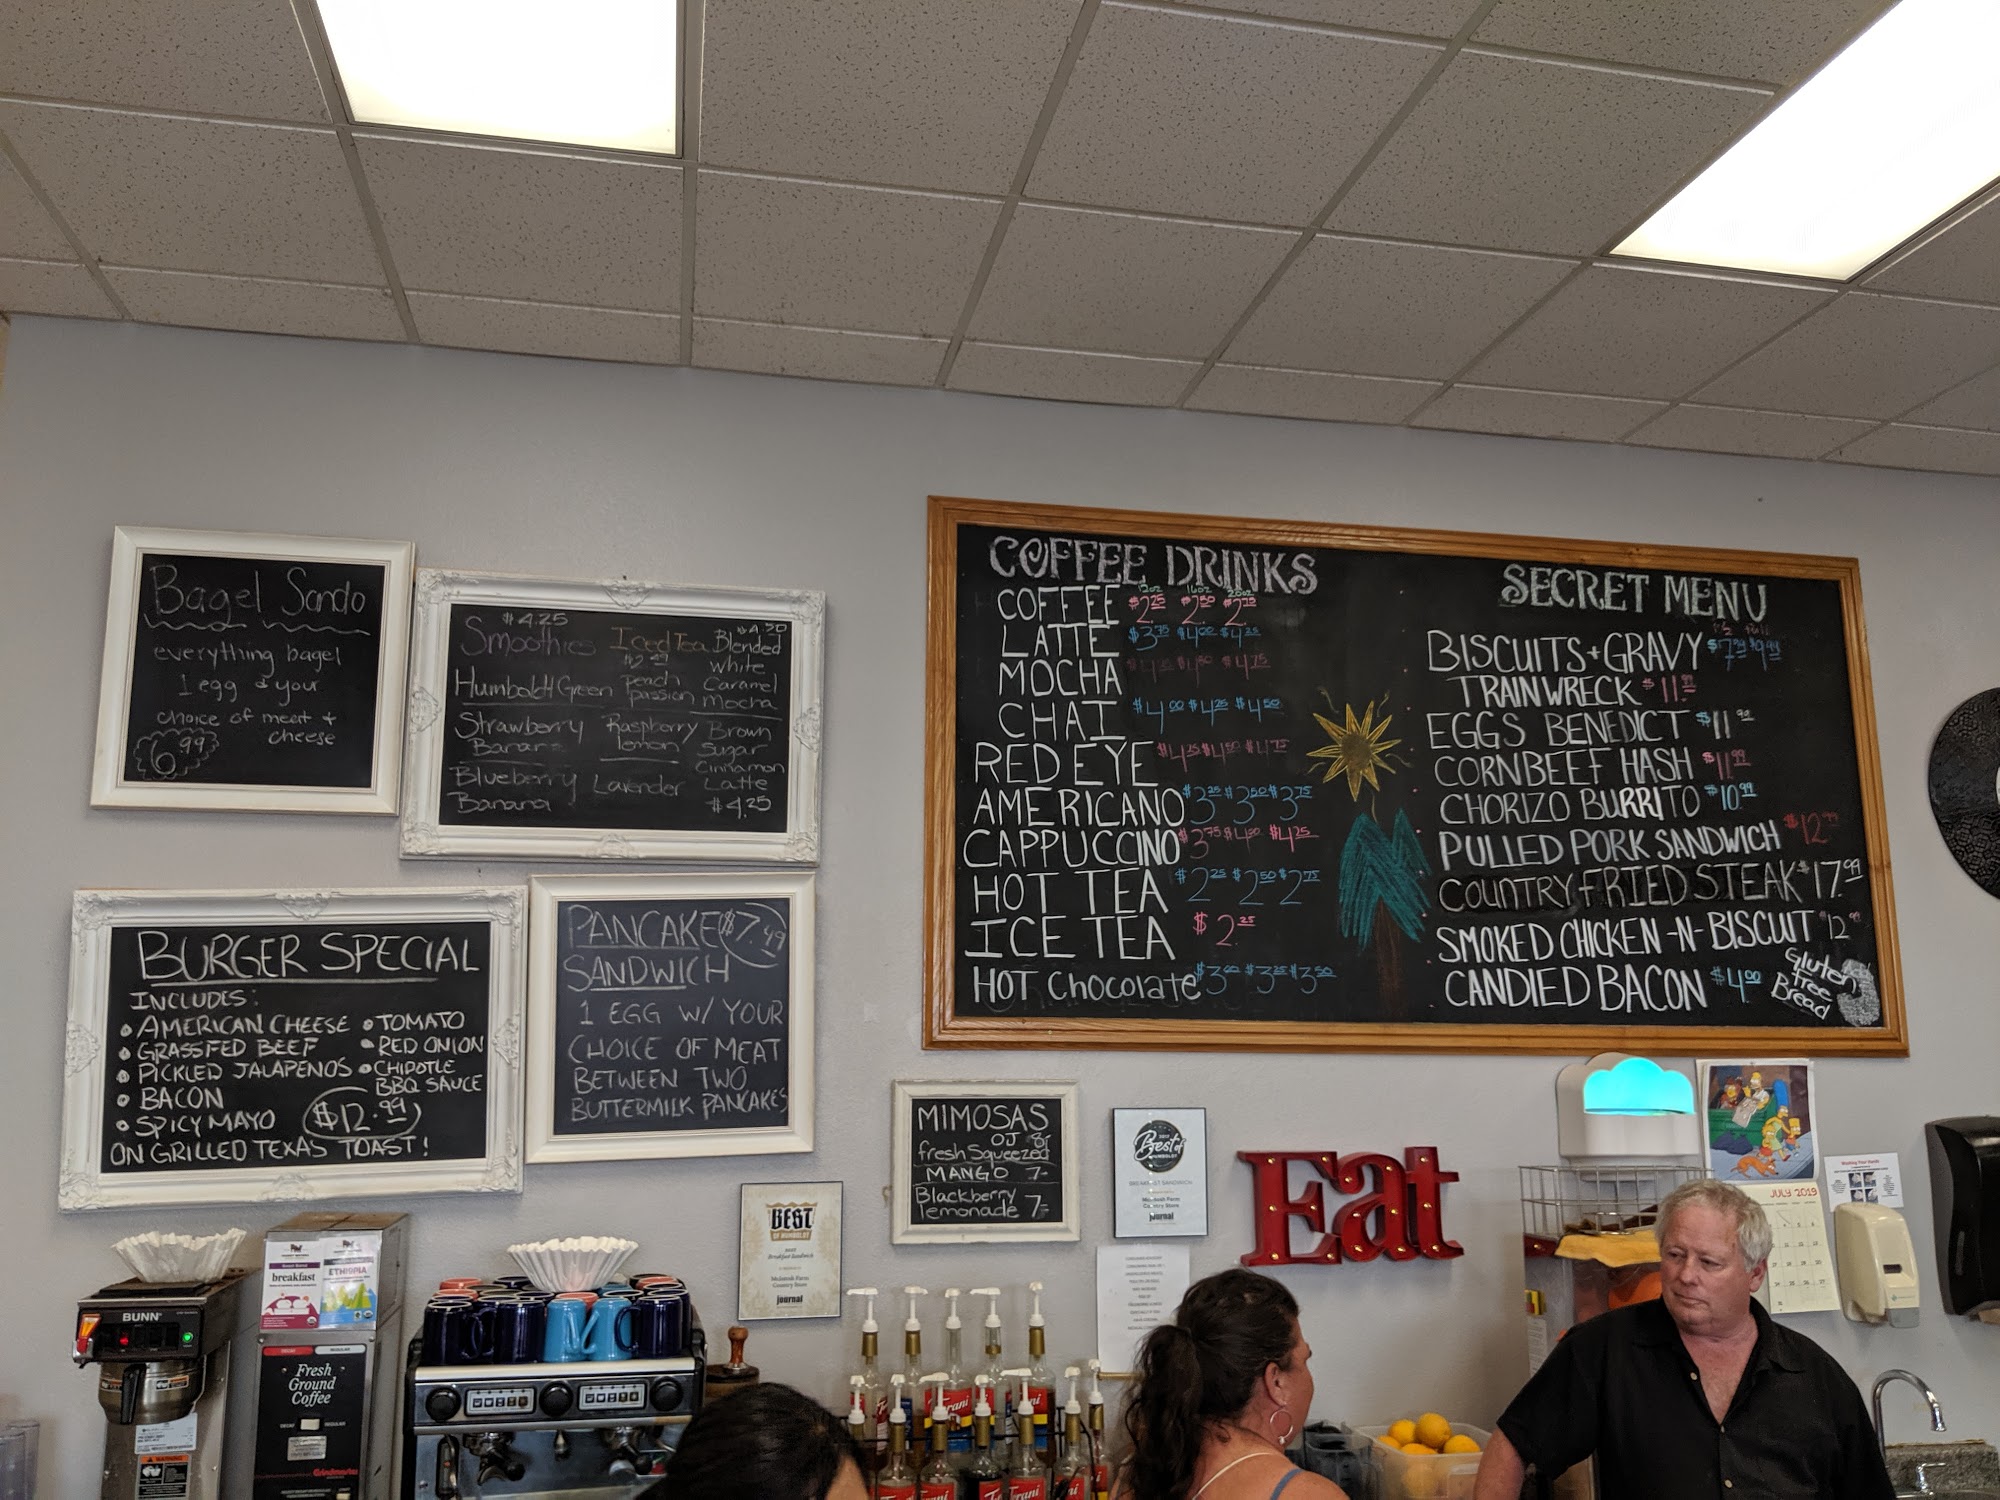 Bagel Sando
everything bagel
1 egg & your
choice of meat &
cheese
6.99
$4.25
Smoothies
Humboldt Green
Strawberry
Banana
Blueberry
Banana
Iced Tea
$2.99
peach
passion
Raspberry
lemon
Lavender
$4.50
Blended
white
Caramel
mocha
Brown
sugar
cinnamon
Latte
$4.25
BURGER SPECIAL
INCLUDES:
• AMERICAN CHEESE
• GRASSFED BEEF
• PICKLED JALAPENOS
• BACON
• SPICY MAYO
• TOMATO
• RED ONION
• CHIPOTLE
BBQ SAUCE
$12.99
ON GRILLED TEXAS TOAST!
PANCAKE $7.49
SANDWICH
1 EGG W/ YOUR
CHOICE OF MEAT
BETWEEN TWO
BUTTERMILK PANCAKES
COFFEE DRINKS
12oz 16oz 20oz
COFFEE $2.25 $2.50 $2.75
LATTE $3.75 $4.00 $4.25
MOCHA $4.50 $4.75
CHAI $4.00 $4.25 $4.50
RED EYE $4.25 $4.50 $4.75
AMERICANO $3.25 $3.50 $3.75
CAPPUCCINO $3.75 $4.00 $4.25
HOT TEA $2.25 $2.50 $2.75
ICE TEA $2.25
HOT Chocolate $3.00 $3.25 $3.50
SECRET MENU
1/2 full
BISCUITS + GRAVY $7.99 $9.99
TRAINWRECK $11.99
EGGS BENEDICT $11.99
CORNBEEF HASH $11.99
CHORIZO BURRITO $10.99
PULLED PORK SANDWICH $12.99
COUNTRY FRIED STEAK $17.99
SMOKED CHICKEN -N- BISCUIT $12.99
CANDIED BACON $4.00
Gluten
Free
Bread
MIMOSAS
OJ 8-
fresh Squeezed
MANGO 7-
Blackberry
lemonade 7-
Best of
HUMBOLDT
BREAKFAST SANDWICH
McIntosh Farm
Country Store
journal
BEST
OF HUMBOLDT
Breakfast Sandwich
McIntosh Farm
Country Store
journal
Eat
JULY 2019
BUNN
breakfast
ETHIOPIA
DECAF REGULAR
Fresh
Ground
Coffee
DECAF REGULAR
Grindmaster
WARNING
Torani
Torani